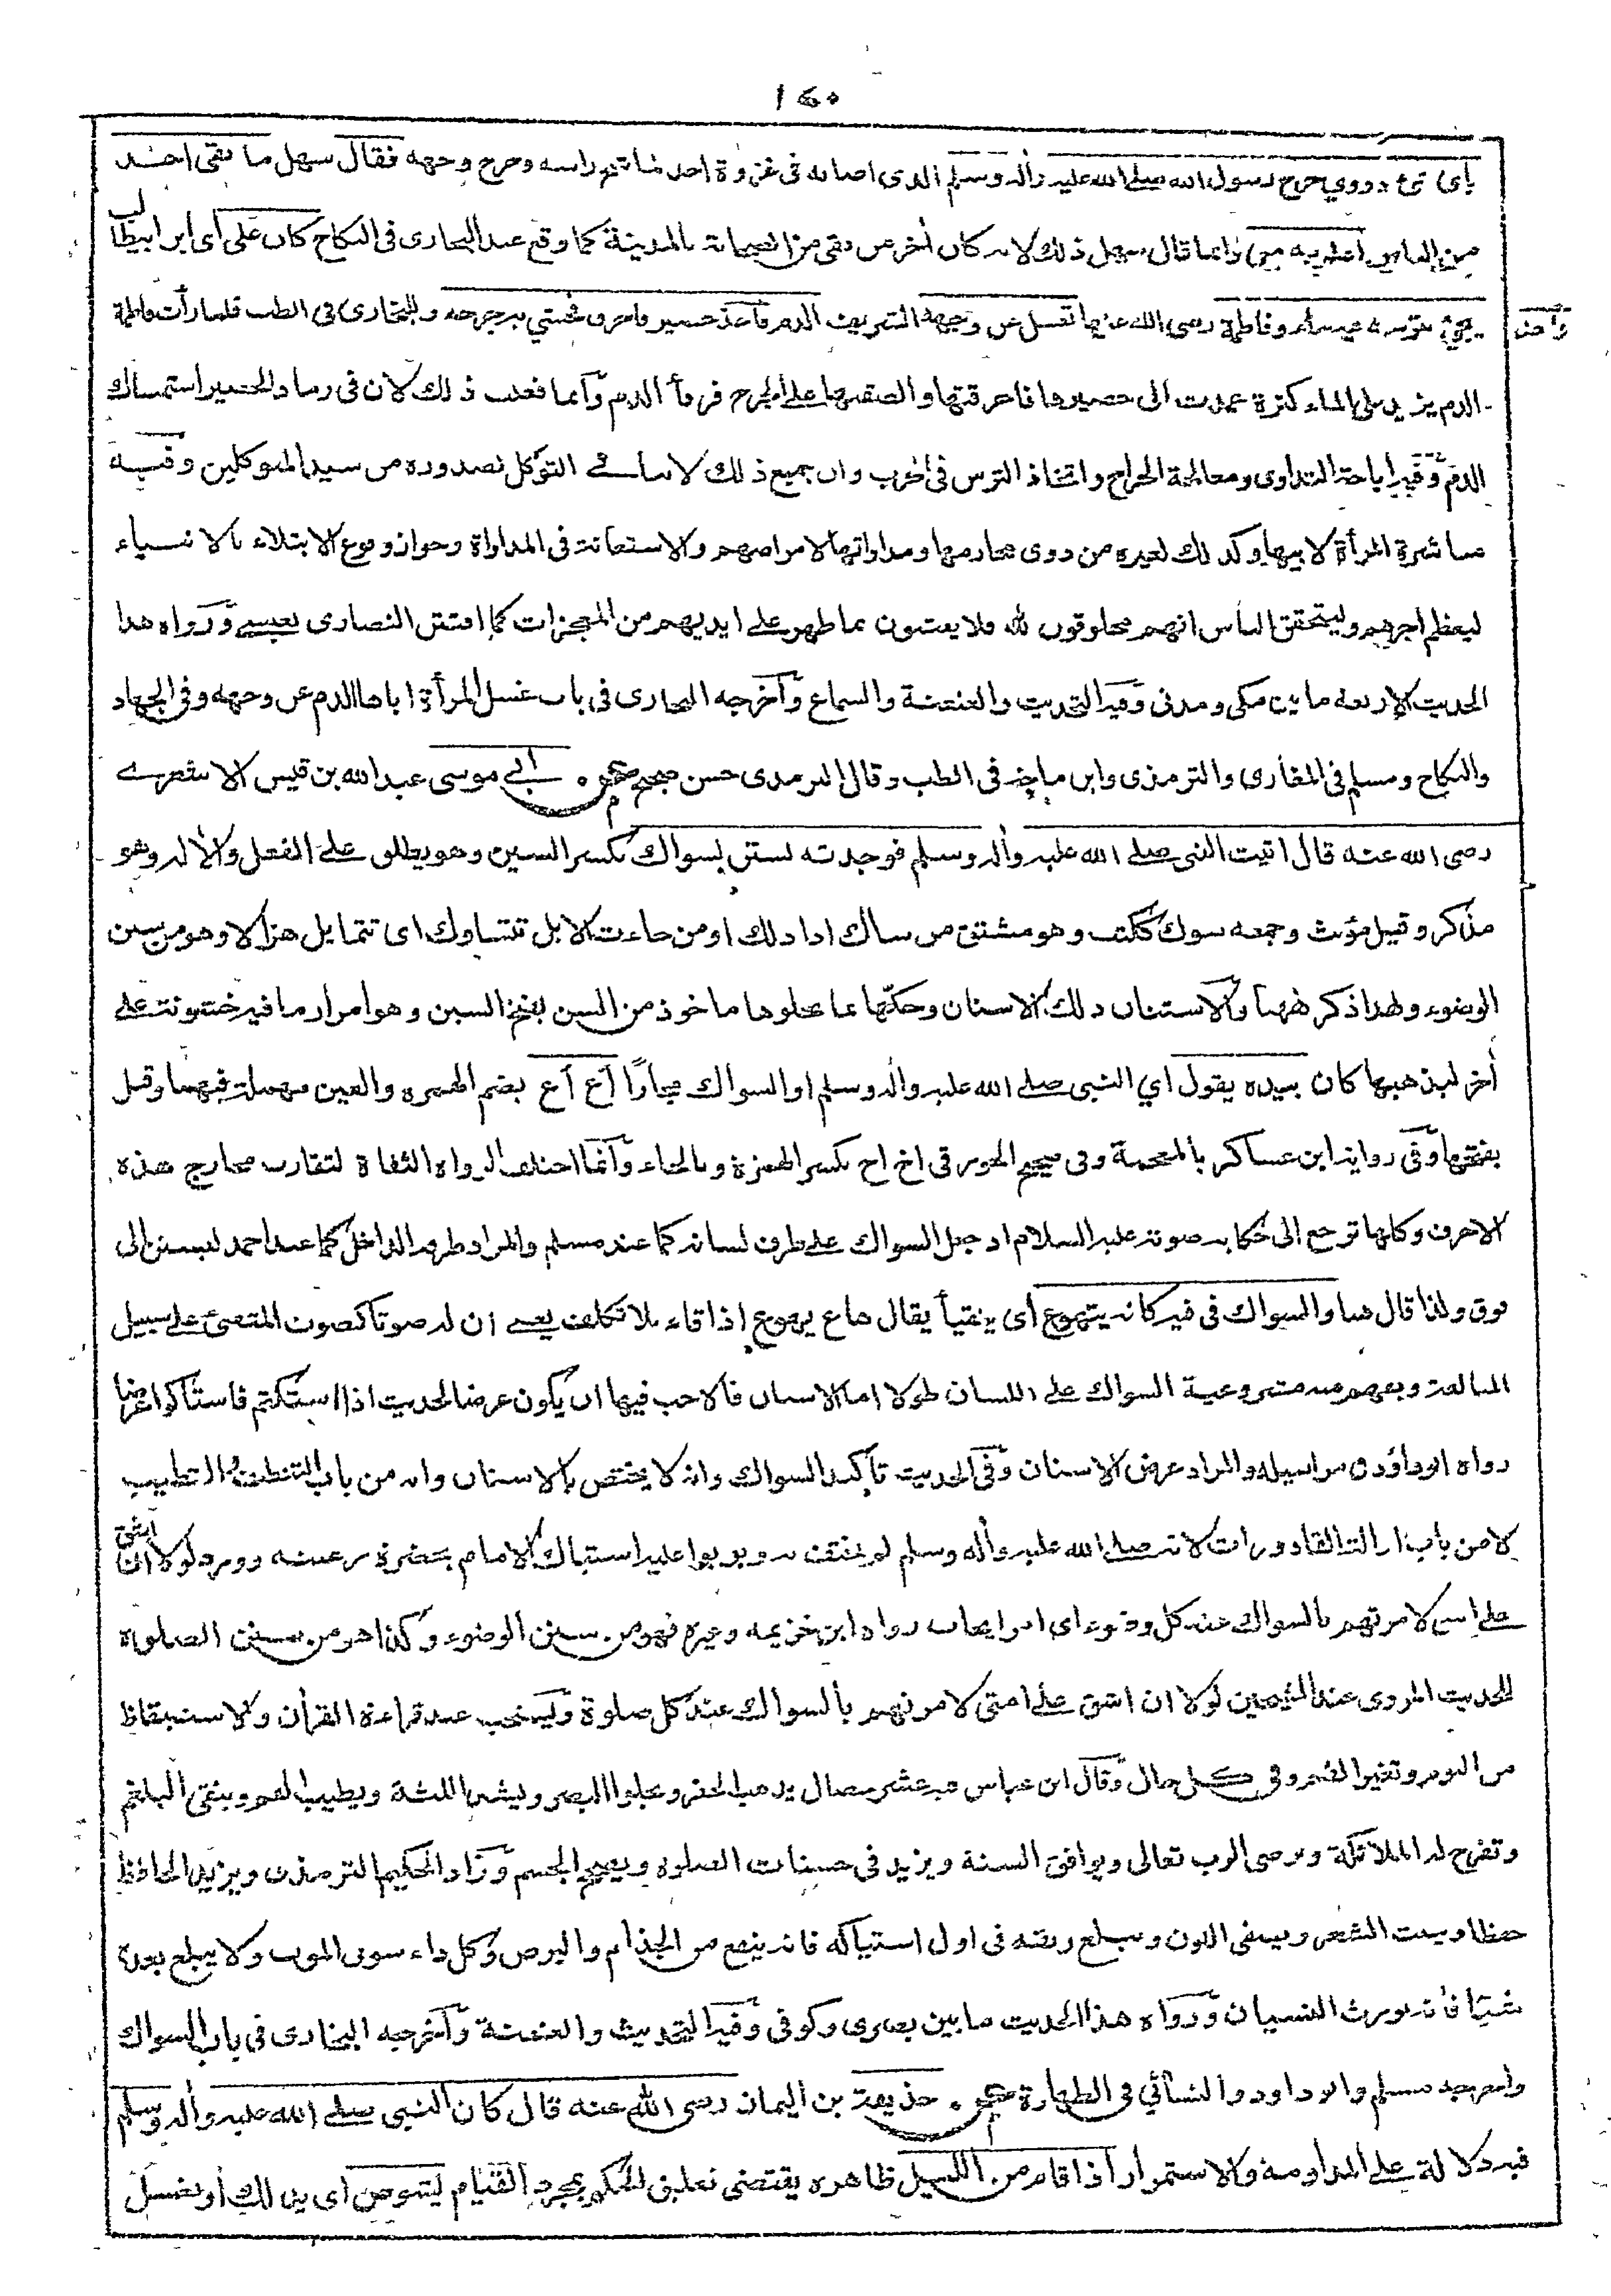 ١٤٠
بأى شئ دووي جرح رسول الله صلے الله عليه وأله وسلم الذى اصابه فى غزوة احد لما شج راسه وجرح وجهه فقال سهل ما بقى احد
من الناس اعلم به منى وانما قال سهل ذلك لانه كان أخر من بقى من الصحابة بالمدينة كما وقع عند البخارى فى النكاح كان على اى ابن ابيطالب
يجئ بترسه فيه ماء وفاطمة رضى الله عنها تغسل عن وجهه الشريف الدم فأخذ حصير فاحرق فحشي به جرحه وللبخارى فى الطب فلما رأت فاطمة
واحد
الدم يزيد على الماء كثرة عمدت الى حصيرها فاحرقتها والصقتها على الجرح فرقأ الدم وانما فعلت ذلك لان فى رماد الحصير استمساك
الدم وفيه اباحة التداوى ومعالجة الجراح واتخاذ الترس فى الحرب وان جميع ذلك لا ينافے التوكل لصدوره من سيد المتوكلين وفيه
مباشرة المرأة لابيها وكذلك لغيره من ذوى محارمها ومداواتها لامراضهم والاستعانة فى المداواة وجواز وقوع الابتلاء بالانبياء
ليعظم اجرهم وليتحقق الناس انهم مخلوقون لله فلا يفتنون بما ظهر على ايديهم من المعجزات كما افتتن النصارى بعيسے ورواه هذا
الحديث الاربعة ما بين مكى ومدنى وفيه التحديث والعنعنة والسماع وأخرجه البخارى فى باب غسل المرأة اباها الدم عن وجهه وفى الجهاد
والنكاح ومسلم فى المغازى والترمذى وابن ماجه فى الطب وقال الترمذى حسن صحيح عن ابے موسى عبد الله بن قيس الاشعرے
رضى الله عنه قال اتيت النبى صلے الله عليه وأله وسلم فوجدته يستن بسواك بكسر السين وهو يطلق علے الفعل والألة وهو
مذكر وقيل مؤنث وجمعه سوك ككتب وهو مشتق من ساك اذا دلك او من جاءت الابل تتساوك اى تتمايل هزالا وهو من سنن
الوضوء ولهذا ذكره ههنا والاستنان دلك الاسنان وحكها بما يجلوها ماخوذ من السن بفتح السين وهو امرار ما فيه خشونة على
أخر ليذهبها كان بيده يقول اي النبى صلے الله عليه وأله وسلم او السواك مجازا أع أع بضم الهمزه والعين مهملة فيهما وقيل
بفتحها وفى رواية ابن عساكر بالمعجمة وفى صحيح الجوزقى اخ اخ بكسر الهمزة وبالخاء وانما اختلف الرواه الثقاة لتقارب مخارج هذه
الاحرف وكلها ترجع الى حكاية صوته عليه السلام اذ جعل السواك على طرف لسانه كما عند مسلم والمراد طرفه الداخل كما عند احمد ليستن الى
فوق ولذا قال هنا والسواك فى فيه كانه يتهوع أى يتقيأ يقال هاع يهوع اذا قاء بلا تكلف يعنے ان له صوتا كصوت المتقئ على سبيل
المبالغة ويفهم منه مشروعية السواك على اللسان طولا اما الاسنان فالاحب فيها ان يكون عرضا لحديث اذا استكتم فاستاكوا عرضا
رواه ابو داؤد فى مراسيله والمراد عرض الاسنان وفى الحديث تأكيد السواك وانه لا يختص بالاسنان وانه من باب التنظيف والتطييب
لا من باب ازالة القاذورات لانه صلے الله عليه وأله وسلم لم يختف به وبوبوا عليه استياك الامام بحضرة رعيته وورد لولا ان اشق
على امتى لامرتهم بالسواك عند كل وضوء اى امر ايجاب رواه ابن خزيمه وغيره فهو من سنن الوضوء وكذا هو من سنن الصلوة
للحديث المروى عند الشيخين لولا ان اشق على امتى لامرتهم بالسواك عند كل صلوة ويستحب عند قراءة القرأن والاستيقاظ
من النوم وتغير الفم وفى كل حال وقال ابن عباس فيه عشر خصال يذهب الحفر ويجلوا البصر ويشد اللثة ويطيب الفم وينقى البلغم
وتفرح له الملائكة ويرضى الرب تعالى ويوافق السنة ويزيد فى حسنات الصلوه ويصحح الجسم وزاد الحكيم الترمذے ويزيد الحافظ
حفظا وينبت الشعر ويصفى اللون ويبلع ريقه فى اول استياكه فانه ينفع من الجذام والبرص وكل داء سوى الموت ولا يبلع بعده
شيئا فأنه يورث النسيان ورواه هذا الحديث ما بين بصرى وكوفى وفيه التحديث والعنعنة وأخرجه البخارى فى باب السواك
واخرجه مسلم وابو داود والنسائي فى الطهارة عن حذيفة بن اليمان رضى الله عنه قال كان النبى صلے الله عليه وأله وسلم
فيه دلالة على المداومة والاستمرار اذا قام من الليل ظاهره يقتضى تعليق الحكم بمجرد القيام يشوص اى يدلك او يغسل